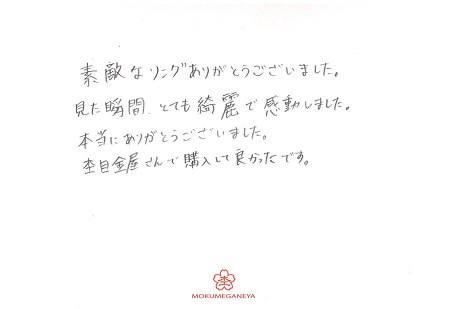 素敵なリングありがとうございました。
見た瞬間、とても綺麗で感動しました。
本当にありがとうございました。
杢目金屋さんで購入して良かったです。
MOKUMEGANEYA